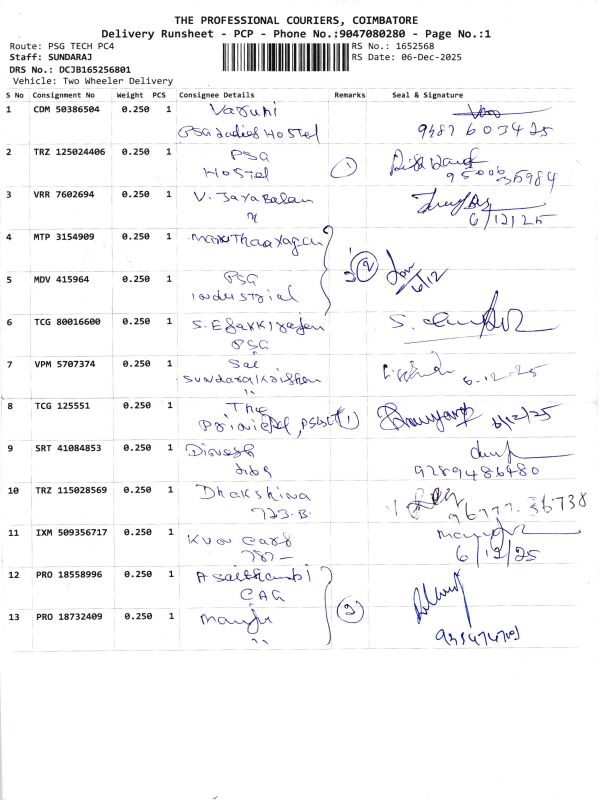 THE PROFESSIONAL COURIERS, COIMBATORE
Delivery Runsheet - PCP - Phone No.:9047080280 - Page No.:1
Route: PSG TECH PC4 RS No.: 1652568
Staff: SUNDARAJ RS Date: 06-Dec-2025
DRS No.: DCJB165256801
Vehicle: Two Wheeler Delivery
S No Consignment No Weight PCS Consignee Details Remarks Seal & Signature
1 CDM 50386504 0.250 1 Varuni
PSG Ladies Hostel
2 TRZ 125024406 0.250 1 PSG
Hostel 1
3 VRR 7602694 0.250 1 V. Jayabalan
6/12/25
4 MTP 3154909 0.250 1
2 6/12
5 MDV 415964 0.250 1 PSG
industrial
6 TCG 80016600 0.250 1 S.
PSG
7 VPM 5707374 0.250 1 Sai
6-12-25
8 TCG 125551 0.250 1 The
6/12/25
9 SRT 41084853 0.250 1 Dinesh
9289486480
10 TRZ 115028569 0.250 1 Dhakshina
723.B. 96777.36738
11 IXM 509356717 0.250 1
6/12/25
12 PRO 18558996 0.250 1
2
13 PRO 18732409 0.250 1 Manju